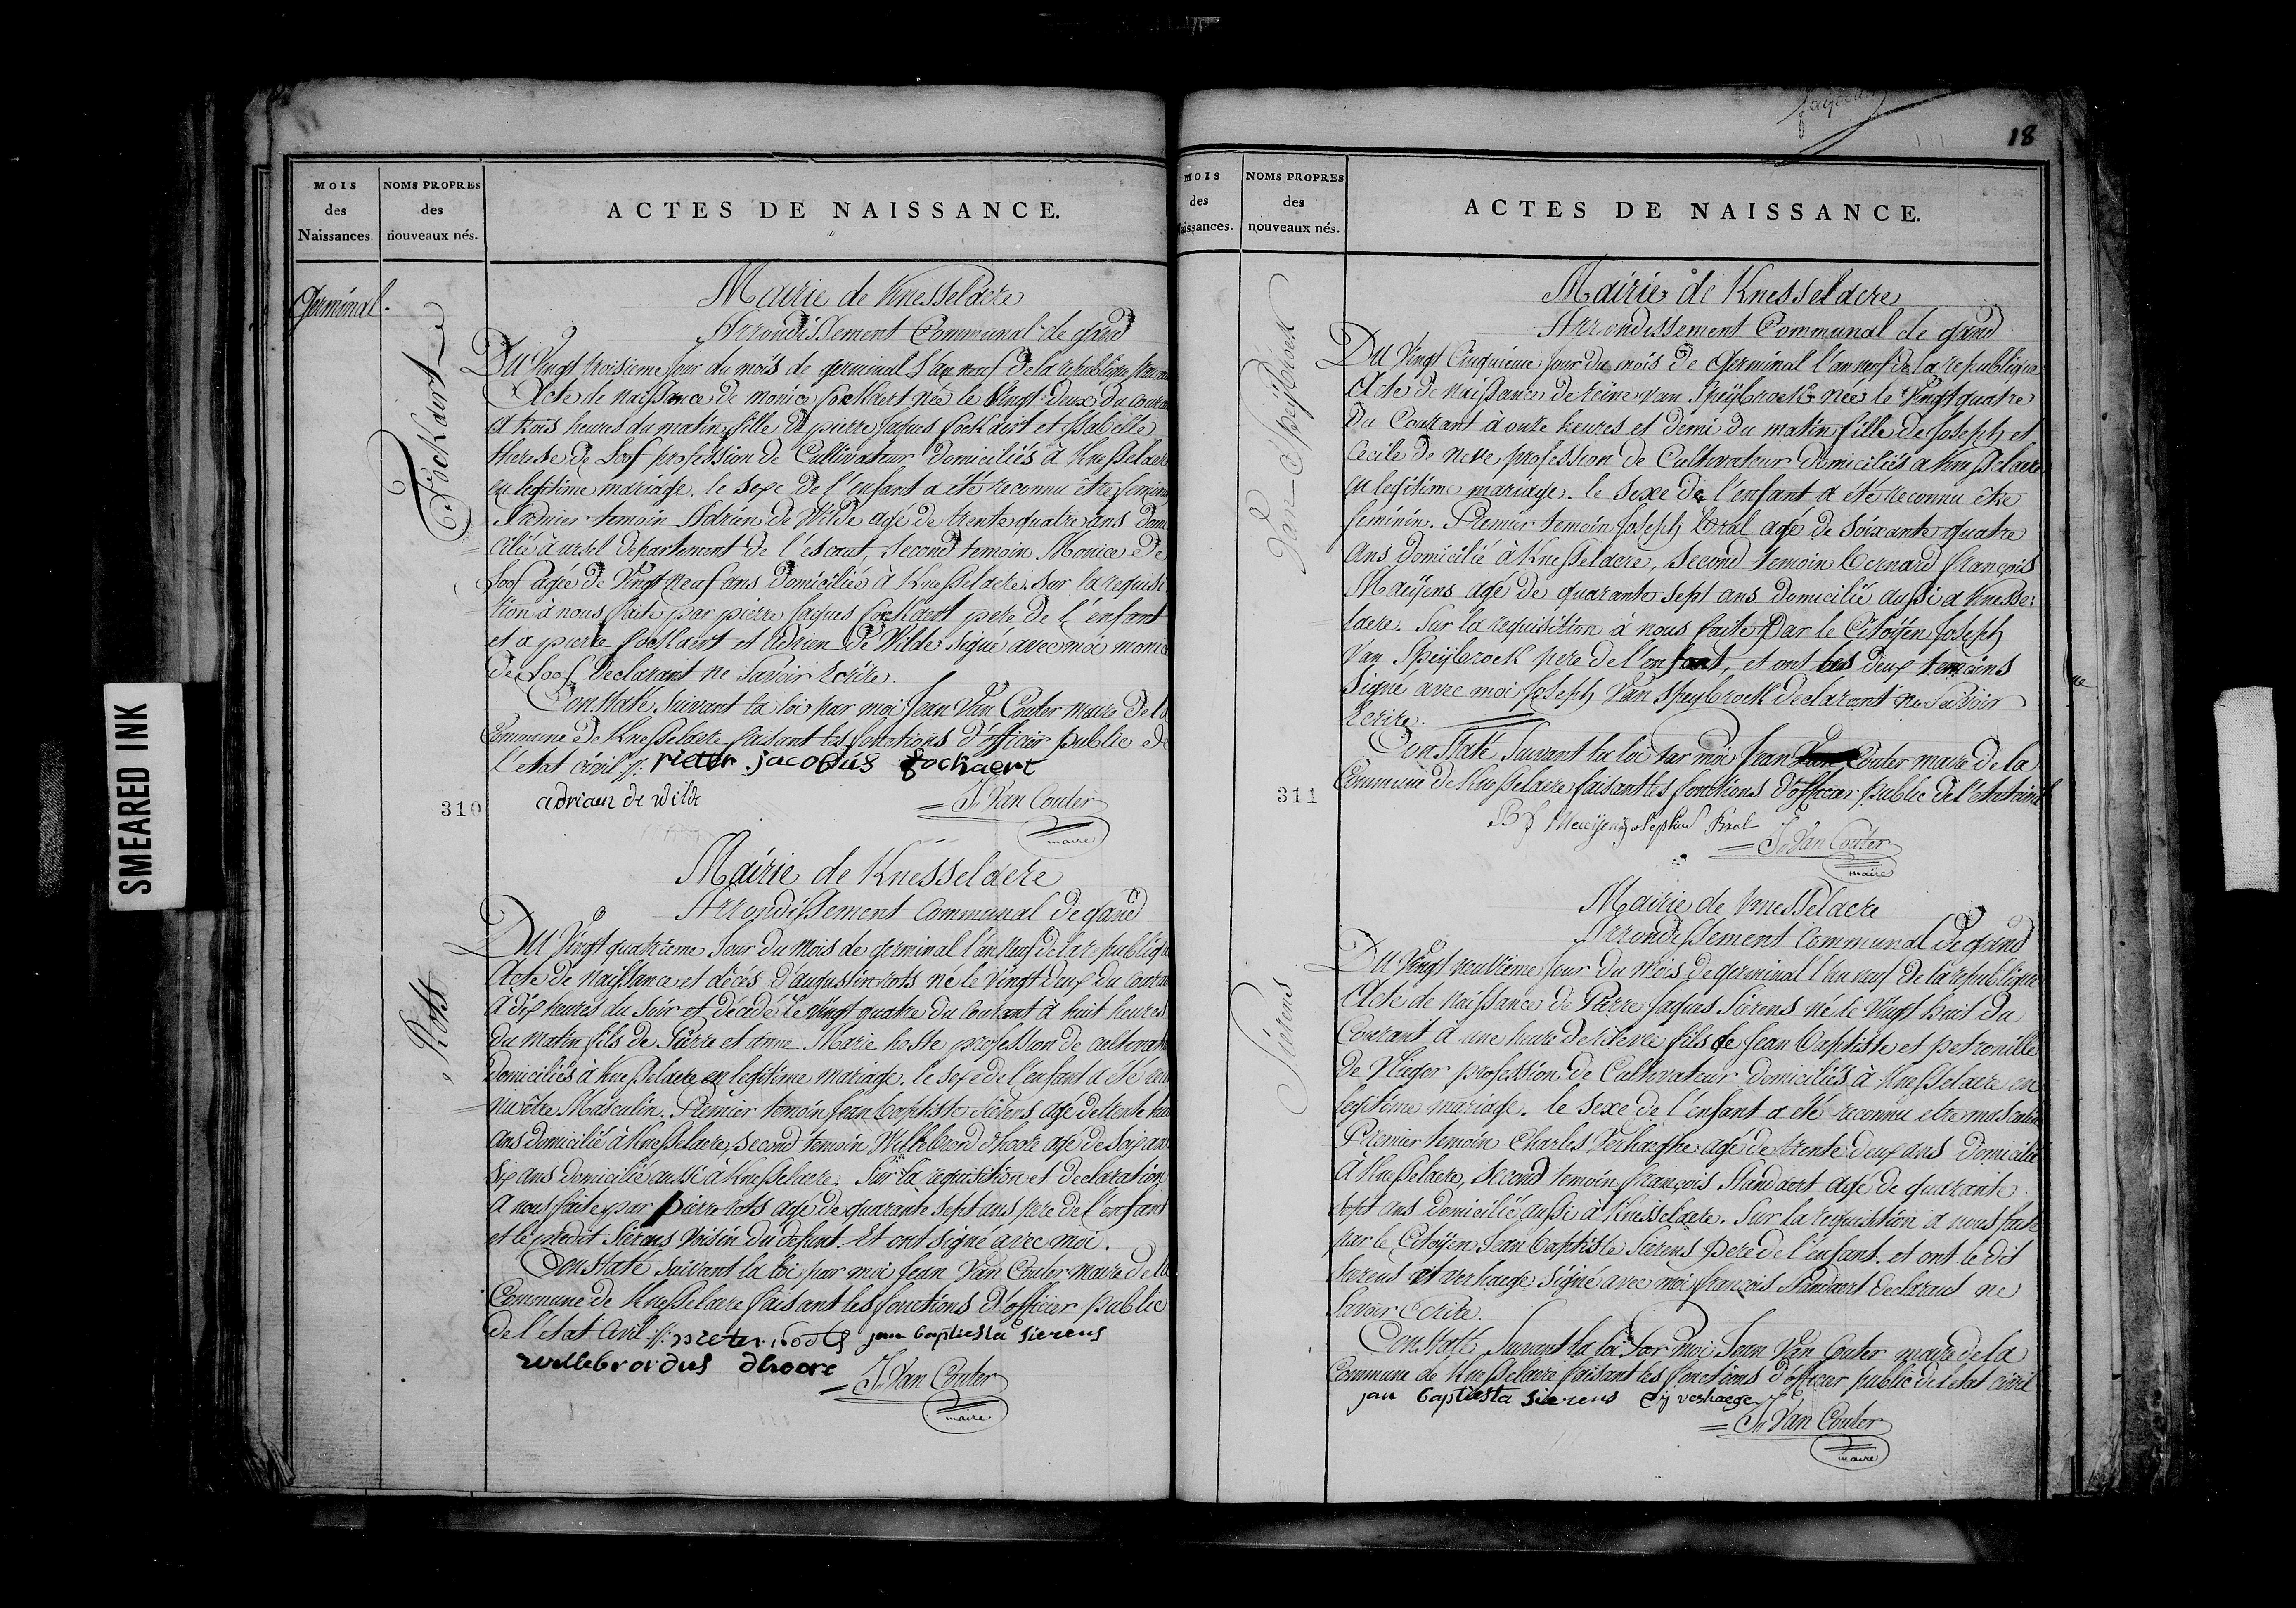 18
SMEARED INK
MOIS
des
Naissances.
NOMS PROPRES
des
nouveaux nés.
ACTES DE NAISSANCE.
Germinal.
Fockaert
Mairie de Knesselaere
Arrondissement Communal de gand
Du Vingt troisieme jour du mois de germinal l'an neuf de la republique
Acte de naissance de monica fockaert née le Vingt deux du courant
a trois heures du matin fille de pierre jaques fockaert et Isabelle
therese de Loof profession de Cultivateur Domiciliés à Knesselaere
en legitime mariage. le sexe de l'enfant a été reconnu être feminin
Premier temoin Adrien de Wilde agé de trente quatre ans Domi
cilié à ursel departement de l'escaut, second temoin Monica de
Loof agée de Vingt neuf ans domiciliée à Knesselaere. sur la requisi
tion à nous faite par pierre jaques fockaert pere de l'enfant
et a pierre fockaert et adrien De Wilde signé avec moi monica
de Loof Declarant ne Savoir ecrire.
Constaté suivant la loi par moi Jean Van Couter maire de la
Commune de Knesselaere faisant les fonctions d'officier public de
l'etat civil :/: pieter jacobus fockaert
adriaen de wilde
J. Van Couter
maire
310
Rots
Mairie de Knesselaere
Arrondissement Communal de gand
Du Vingt quatrieme Jour du mois de germinal l'an neuf de la republique
Acte de naissance et décés d'augustin rots né le vingt deux du courant
à dix heures du soir et décédé le vingt quatre du Courant à huit heures
du matin fils de Pierre et anne Marie hoste profession de cultivateur
Domiciliés à Knesselaere en legitime mariage. le sexe de l'enfant a été recon
nu être Masculin. Premier temoin Jean baptiste Sierens agé de trente huit
ans domicilié à Knesselaere, second temoin Willebrord dhoore agé de soixante
six ans domicilié aussi à Knesselaere. Sur la requisition et declaration
a nous faite par pierre rots agé de quarante sept ans pere de l'enfant
et le predit Sierens Voisin du defunt. Et ont signé avec moi.
Constaté suivant la loi par moi Jean Van Couter maire de la
Commune de Knesselaere faisant les fonctions d'officier public
de l'état Civil :/: pieter rodts jan baptiesta sierens
willebrordus dhoore
J. Van Couter
maire
MOIS
des
Naissances.
NOMS PROPRES
des
nouveaux nés.
ACTES DE NAISSANCE.
Van Speijbroeck
Mairie de Knesselaere
Arrondissement Communal de gand
Du Vingt Cinquieme jour du mois de Germinal l'an neuf de la republique
Acte de naissance de reine van Speijbroeck née le Vingt quatre
Du Courant à onze heures et demi du matin fille de Joseph et
Cecile de neve profession de Cultivateur Domiciliés a Knesselaere
en legitime mariage. le sexe de l'enfant a été reconnu être
feminin. Premier temoin Joseph bral agé de soixante quatre
ans domicilié à Knesselaere, second temoin bernard françois
Maeijens agé de quarante sept ans domicilié aussi a Knesse:
laere. Sur la requisition à nous faite Par le Citoÿen Joseph
Van Speijbroeck pere de l'enfant, et ont les deux temoins
signé avec moi Joseph Van Speybroeck declarant ne Savoir
ecrire.
Constaté Suivant la loi Par moi Jean Van Couter maire de la
Commune de Knesselaere faisant les fonctions d'officier public de l'etat civil
B f Maeijens josephus Bral
J. Van Couter
maire
311
Sierens
Mairie de Knesselaere
Arrondissement Communal de gand
Du Vingt neuvieme Jour du Mois de germinal l'an neuf de la republique
Acte de naissance de Pierre Jaques Sierens né le Vingt huit du
Courant à une heure de relevée fils de Jean baptiste et petronille
De Vlieger profession de Cultivateur Domiciliés à Knesselaere en
legitime mariage. le sexe de l'enfant a été reconnu etre masculin
Premier temoin Charles Verhaeghe agé de trente deux ans Domicilié
à Knesselaere, second temoin françois Standaert agé de quarante
sept ans domicilié aussi à Knesselaere. Sur la requisition a nous faite
par le Citoÿen Jean baptiste Sierens Pere de l'enfant. et ont le dit
Sierens et verhaege signé avec moi françois Standaert declarant ne
Savoir écrire.
Constaté Suivant la loi Par moi Jean Van Couter maire de la
Commune de Knesselaere faisant les fonctions d'officier public de l'etat civil
jan baptiesta sierens verhaege
J. Van Couter
maire